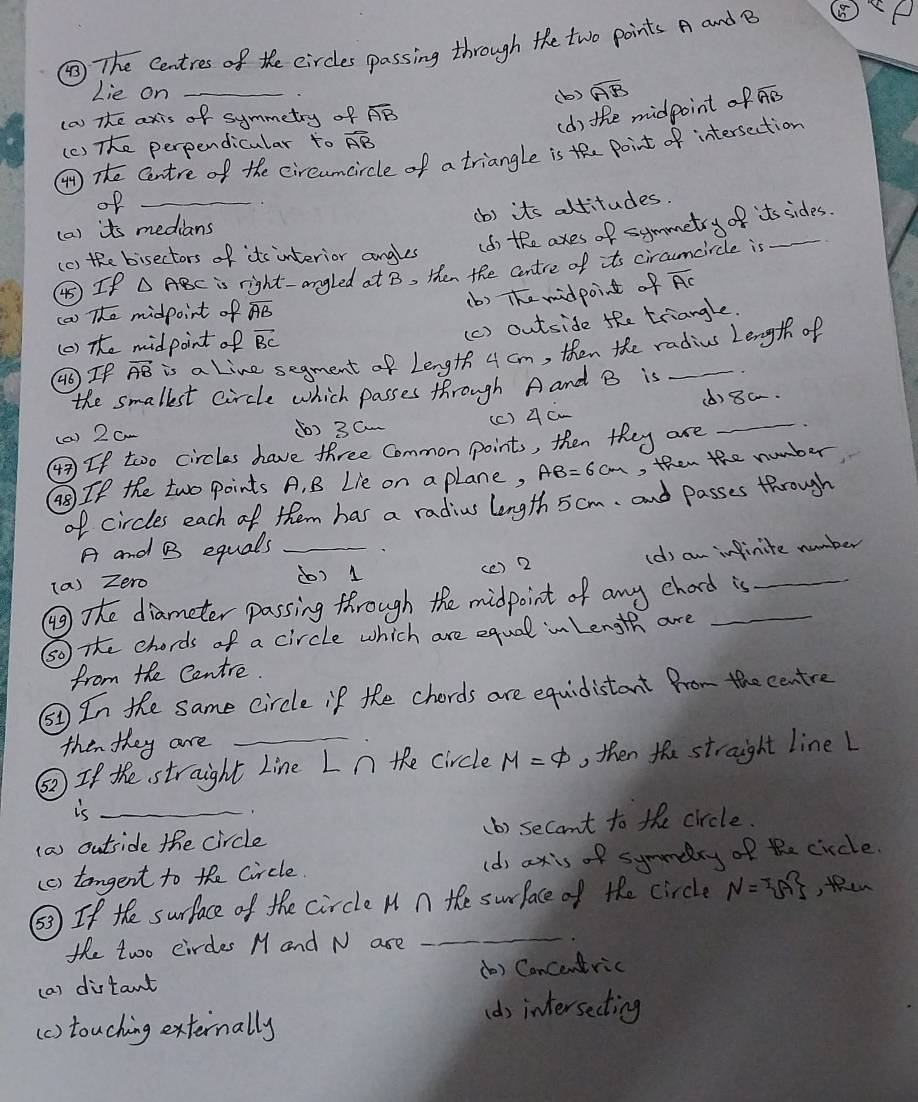 (43) The Centres of the circles passing through the two points A and B
Lie on ______.
(a) The axis of symmetry of A̅B̅ (b) A̅B̅
(c) The perpendicular to A̅B̅ (d) the midpoint of A̅B̅
(44) The Centre of the circumcircle of a triangle is the point of intersection
of ______.
(a) its medians (b) its altitudes.
(c) the bisectors of its interior angles (d) the axes of symmetry of its sides.
(45) If Δ ABC is right-angled at B, then the centre of its circumcircle is ____.
(a) The midpoint of A̅B̅ (b) The midpoint of A̅C̅
(c) The midpoint of B̅C̅ (c) outside the triangle.
(46) If A̅B̅ is a Line segment of Length 4 cm, then the radius Length of
the smallest circle which passes through A and B is ____.
(a) 2 cm (b) 3 cm (c) 4 cm (d) 8 cm.
(47) If two circles have three Common points, then they are ____.
(48) If the two points A, B Lie on a plane, AB = 6 cm, then the number
of circles each of them has a radius length 5 cm. and passes through
A and B equals ____.
(a) Zero (b) 1 (c) 2 (d) an infinite number
(49) The diameter passing through the midpoint of any chord is ____
(50) The chords of a circle which are equal in Length are ____
from the Centre.
(51) In the same circle if the chords are equidistant from the centre
then they are ____.
(52) If the straight Line L ∩ the circle M = Φ, then the straight line L
is ____.
(a) outside the circle (b) secant to the circle.
(c) tangent to the circle. (d) axis of symmetry of the circle.
(53) If the surface of the circle M ∩ the surface of the circle N = {A}, then
the two circles M and N are ____.
(a) distant (b) Concentric
(c) touching externally (d) intersecting